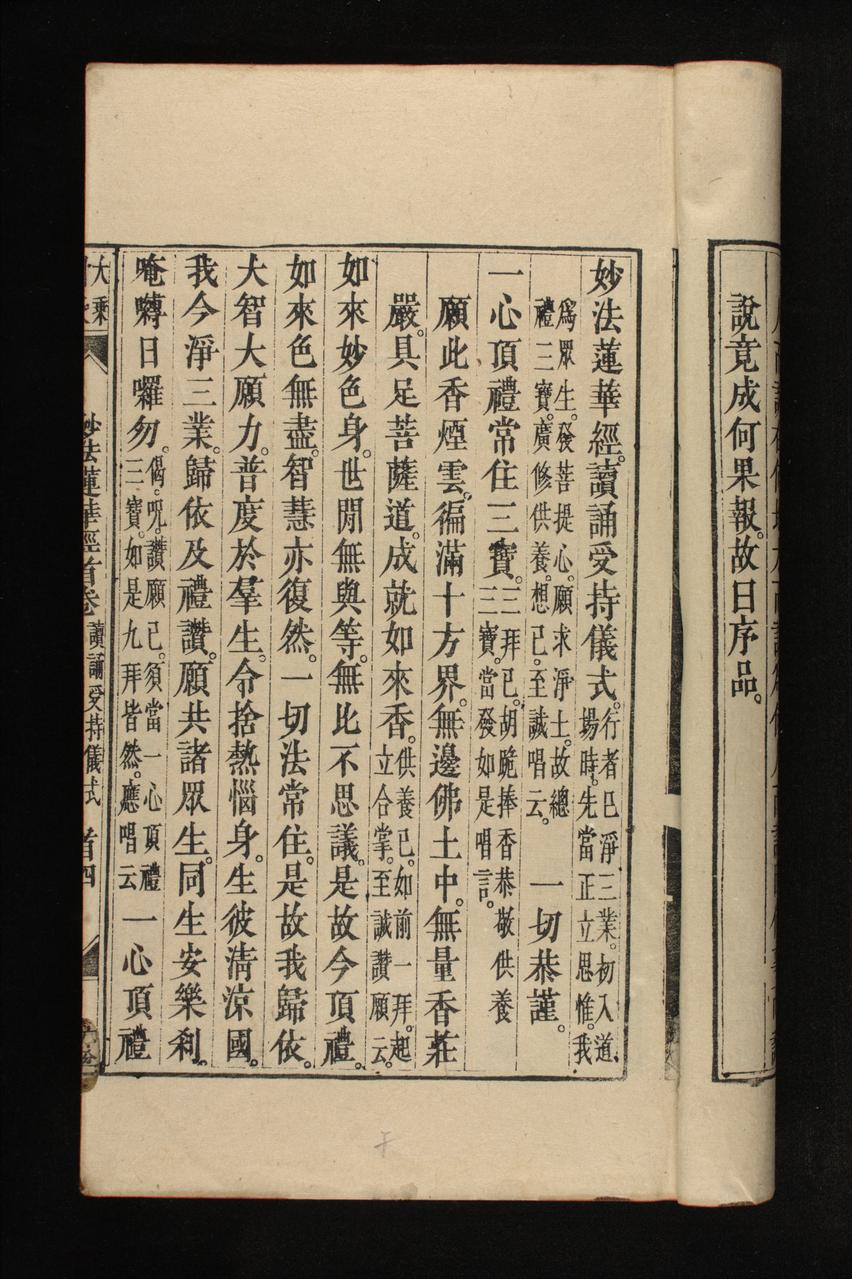 說竟成何果報。故曰序品。
妙法蓮華經。讀誦受持儀式。行者已淨三業。初入道場時。先當正立思惟。我
爲眾生。發菩提心。願求淨土。故總禮三寶。廣修供養。想已。至誠唱云。一切恭謹。
一心頂禮常住三寶。三拜已。胡跪捧香恭敬供養三寶。當發如是唱言。
願此香煙雲。徧滿十方界。無邊佛土中。無量香莊
嚴。具足菩薩道。成就如來香。供養已。如前一拜。起立合掌。至誠讚願云。
如來妙色身。世閒無與等。無比不思議。是故今頂禮。
如來色無盡。智慧亦復然。一切法常住。是故我歸依。
大智大願力。普度於羣生。令捨熱惱身。生彼清涼國。
我今淨三業。歸依及禮讚。願共諸眾生。同生安樂利。
唵嚩日囉勿。偈。呪讚願已。須當一心頂禮三寶。如是九拜皆然。應唱云一心頂禮
大乘
妙法蓮華經首卷 讀誦受持儀式 首四